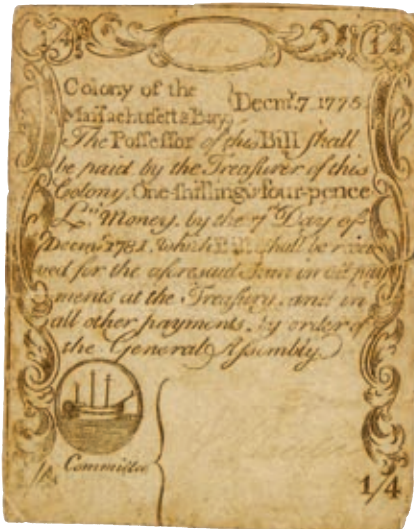 1/4 1/4
Colony of the } Decmr. 7. 1775.
Massachusetts Bay
The Possessor of this Bill shall
be paid by the Treasurer of this
Colony, One-shilling & four-pence
L.. Money, by the 7th Day of
Decmr. 1781. which Bill shall be recei
ved for the aforesaid Sum in all pay
ments at the Treasury and in
all other payments by order of
the General Assembly.
Committee
1/4